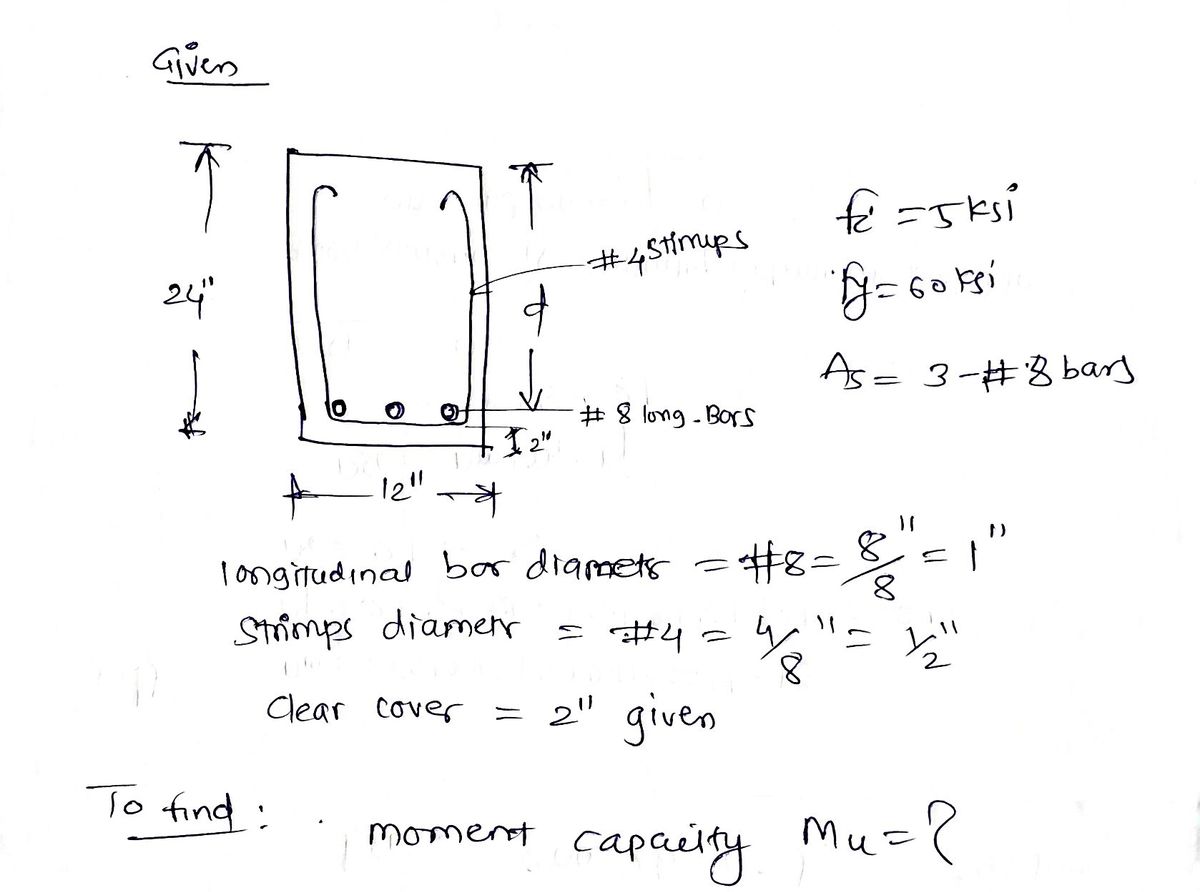 Given
24"
d
#4 Stirrups
# 8 long. Bars
2"
12"
fc' = 5 ksi
fy = 60 ksi
As = 3-#8 bars
longitudinal bar diameter = #8 = 8/8" = 1"
Stirrups diameter = #4 = 4/8" = 1/2"
Clear cover = 2" given
To find :
moment capacity Mu = ?